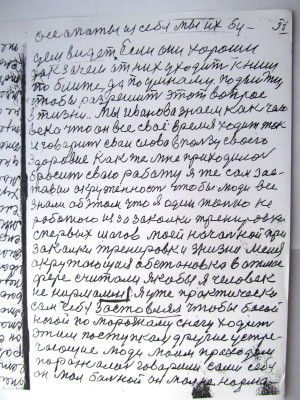 все опыты из себя мы их бу- 56
дем видет если они хороши
так зачем от них уходит к ним
по ближе, да по умнали подойти,
чтобы разрешит этот вопрос
в жизни. Мы Иванова знаем как чало
века что он все своё время ходит так
и говорит сваи слова в пользу своего
здоровие Как же мне приходилос
бросит сваю работу я же сам зас
тавил окруженност чтобы люди все
знали об том что я один только не
работаю из за закалки тренировки
с первых шагов моей начатной при
закалки тренировки и жизни меня
окружающая обстановка в атмос
фере считали якобы я человек
не нармалный Лутче практически
сам себе заставлял чтобы босой
ногой по морозкому снегу ходит
этим поступкам другие устре
чающие люди моим приходам
поражалис говорили сами себе
он мол балной он мол не нарма-